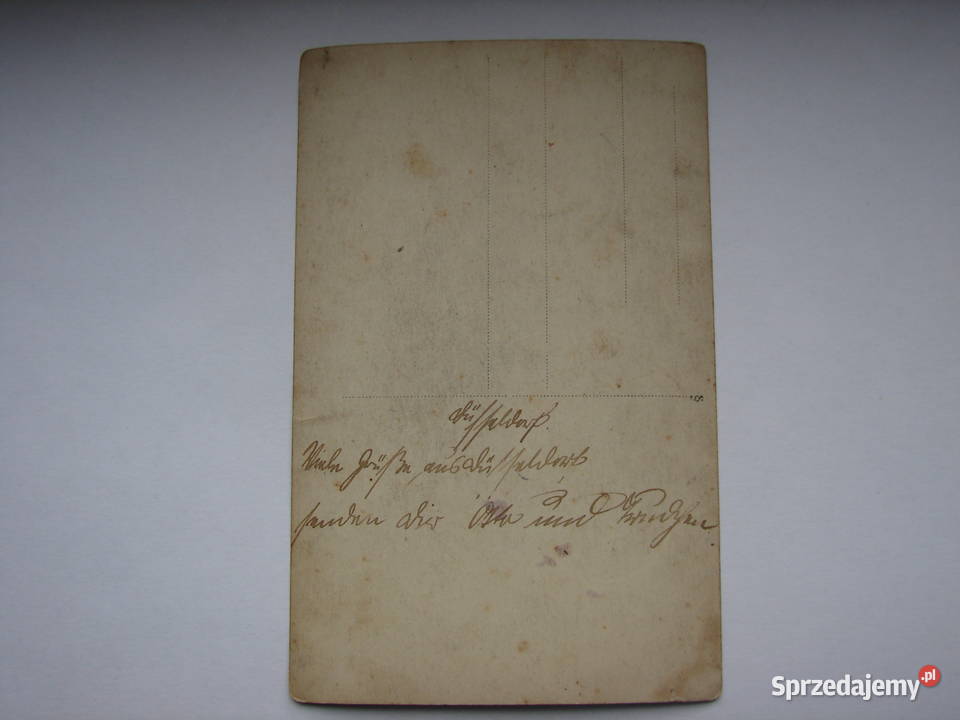 Düsseldorf.
Viele Grüße aus Düsseldorf
senden dir Otto und Trudchen
Sprzedajemy.pl